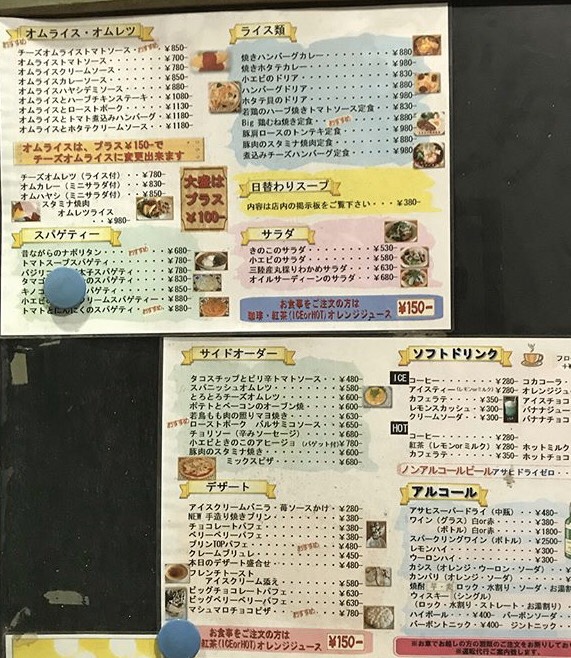 オムライス・オムレツ
チーズオムライストマトソース・おすすめ ¥850-
オムライストマトソース ¥700
オムライスクリームソース ¥780
オムライスカレーソース ¥850-
オムライスハヤシデミソース ¥880
オムライスとハーブチキンステーキ ¥1080
オムライスとローストポーク ¥1130-
オムライスとトマト煮込みハンバーグ ¥1180-
オムライスとホタテクリームソース ¥1180-
オムライスは、プラス¥150-で
チーズオムライスに変更出来ます
チーズオムレツ（ライス付） ¥780-
オムカレー（ミニサラダ付） ¥830-
オムハヤシ（ミニサラダ付） ¥850-
スタミナ焼肉
オムレツライス
¥980-
大盛は
プラス
¥100-
スパゲティー
昔ながらのナポリタン おすすめ ¥680-
トマトスープスパゲティ ¥780
¥780
¥830
¥850-
¥880-
トマトとにんにくのスパゲティ おすすめ ¥880
ライス類
焼きハンバーグカレー ¥880
焼きホタテカレー ¥980
小エビのドリア ¥830
ハンバーグドリア ¥880
ホタテ貝のドリア ¥980
若鶏のハーブ焼きトマトソース定食 ¥830-
Big 鶏むね焼き定食 おすすめ ¥880
豚肩ロースのトンテキ定食 ¥980
豚肉のスタミナ焼肉定食 ¥880
煮込みチーズハンバーグ定食 ¥980
日替わりスープ
内容は店内の掲示板をご覧下さい ¥380-
サラダ
きのこのサラダ ¥530
小エビのサラダ ¥580-
三陸産丸採りわかめサラダ ¥630
オイルサーディーンのサラダ ¥680-
お食事をご注文の方は
珈琲・紅茶(ICEorHOT)オレンジジュース ¥150-
サイドオーダー
タコスチップとピリ辛トマトソース ¥480-
スパニッシュオムレツ ¥580-
とろとろチーズオムレツ ¥600
ポテトとベーコンのオーブン焼 ¥600
若鳥もも肉の照りマヨ焼き ¥630
おすすめ ローストポーク バルサミコソース ¥650-
チョリソー（辛みソーセージ） ¥680-
小エビときのこのアヒージョ（バゲット付） ¥780
豚肉のスタミナ焼き ¥600-
ミックスピザ ¥680-
デザート
アイスクリームバニラ・苺ソースかけ ¥280-
NEW 手造り焼きプリン ¥380-
チョコレートパフェ ¥380-
ベリーベリーパフェ ¥380-
プリンTOPパフェ おすすめ ¥480-
クレームブリュレ ¥450-
本日のデザート盛合せ ¥480
フレンチトースト
アイスクリーム添え ¥580-
ビッグチョコレートパフェ ¥630-
ビッグベリーベリーパフェ ¥630-
マシュマロチョコピザ おすすめ ¥780-
お食事をご注文の方は
紅茶(ICEorHOT)オレンジジュース ¥150-
ソフトドリンク
ICE
コーヒー ¥280-
アイスティー(レモンorミルク) ¥280-
カフェラテ ¥350
レモンスカッシュ ¥300
クリームソーダ ¥380
コカコーラ
オレンジジュ
アイスチョコ
バナナジュー
HOT
コーヒー ¥280-
紅茶（レモンorミルク） ¥280-
カフェラテ ¥350-
ホットミルク
ホットチョコ
ノンアルコールビール アサヒドライゼロ
アルコール
アサヒスーパードライ（中瓶） ¥480-
ワイン（グラス）白or赤 ¥380-
（ボトル）白or赤 ¥1800-
スパークリングワイン（ボトル） ¥2500
レモンハイ ¥300
ウーロンハイ ¥300-
カシス（オレンジ・ウーロン・ソーダ）
カンパリ（オレンジ・ソーダ）
ウィスキー（シングル）
（ロック・水割り・ストレート・お湯割り）
ハイボール ¥400- バーボンソーダ
バーボントニック ¥400- ジントニック
※お車でお越しの方の酒類のご注文をお断りしてお
※運転代行ご案内致します